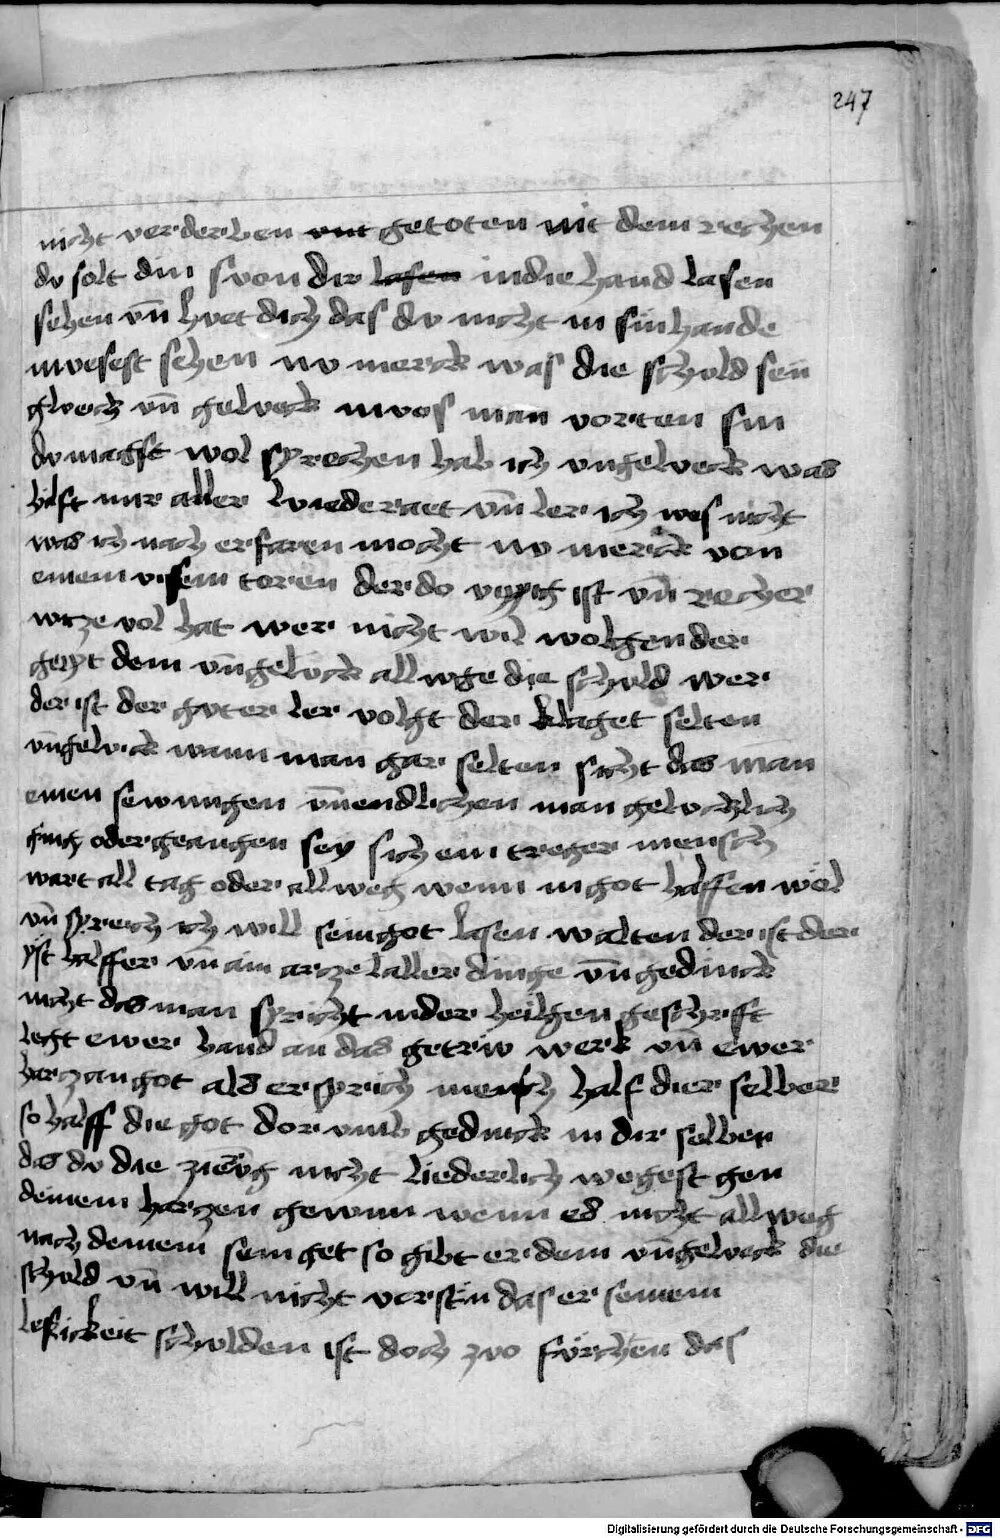 247
nicht verderben vnt getoten mit dem rechen
dv solt din svon dir lasen indie hand lasen
sehen vn̄ hvet dich das dv nicht in sin hande
mvesest sehen nv merck was die schvld sen
glvech vn̄ gelveck mvos man vorten sin
dv magst wol sprechen hab ich vngelveck was
hilft mir aller lviederaet vn̄ ler ich wes nicht
was ich nach erfaren mocht nv merck von
einem visem toren der do vppig ist vn̄ recher
wicze vol hat wer nicht wil wolgen der
geipt dem vn̄gelvck allwge die schvld wer
der ist der gvter ler volgt der klaget selten
vn̄gelvick wann man gar selten sicht das man
einen sewmigen vn̄endlichen man gelvcklich
sich ein treger mensch
wart all tag oder allweg wenn in got halffen wöl
vn̄ sprech ich will sein got lasen walten der ist der
pst halffer vn̄ ain arcze aller dinge vn̄ gedinck
nicht das man spricht in der heilgen geschrift
legt ewer hand an das getriw werk vn̄ ewer
harz an got als er sprich mensch half dier selber
so halff die got dor vmb gedinck in dir selben
das dv die nicht liederlich wegest gen
deinem harzen gewinn wenn es nicht allweg
nach deinem sein get so gibt er dem vn̄gelveck die
schvld vn̄ will nicht vorstin das er seinem
schvlden ist doch zvo fürchen das
Digitalisierung gefördert durch die Deutsche Forschungsgemeinschaft - DFG